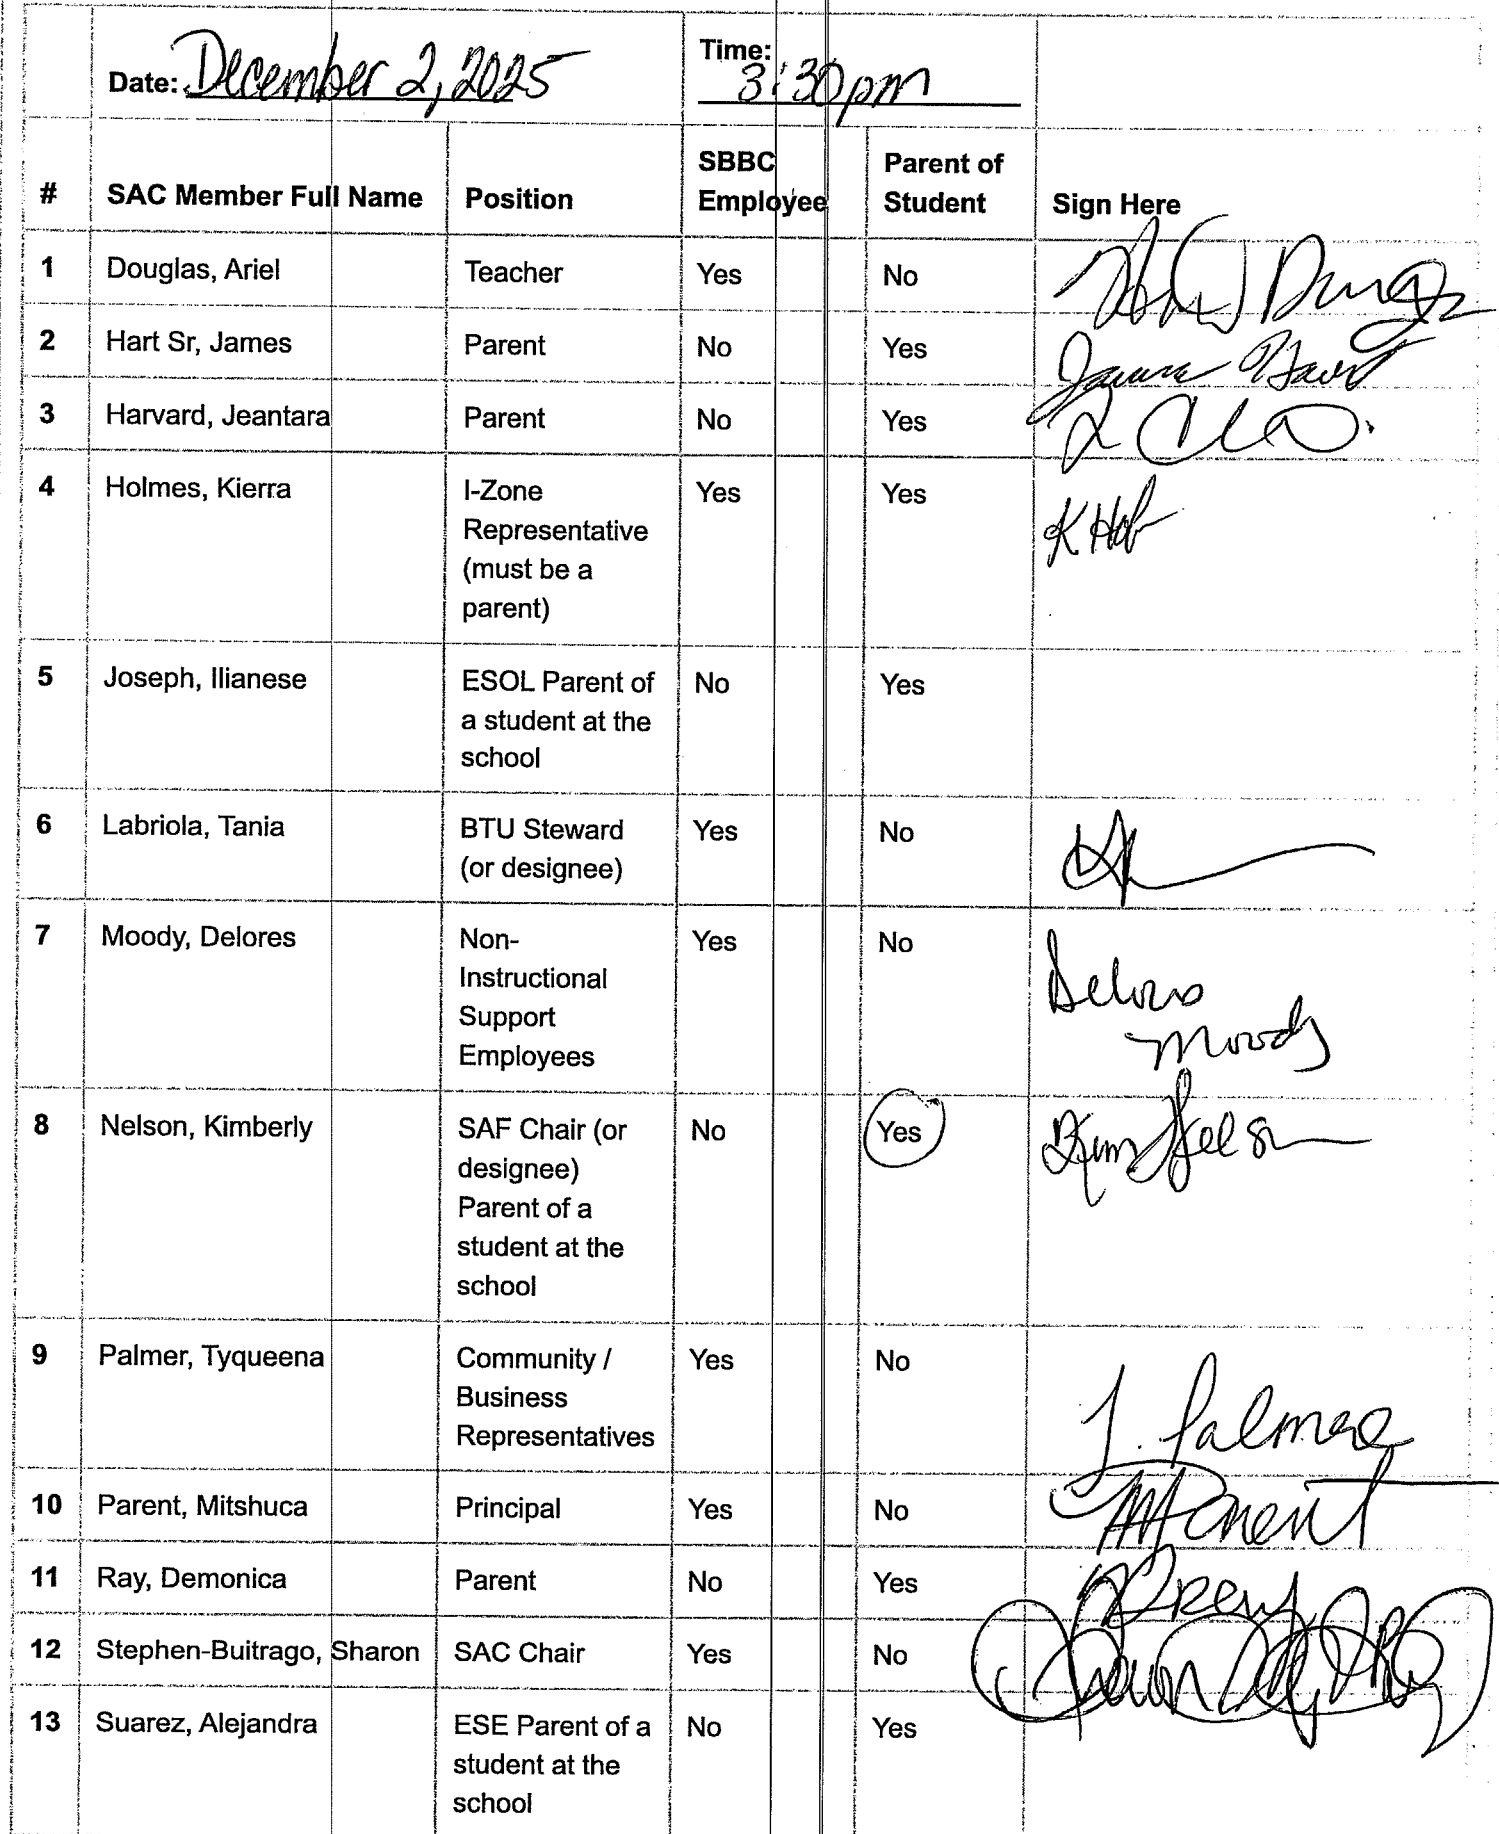 Date: December 2, 2025 Time: 3:30pm
# SAC Member Full Name Position SBBC Employee Parent of Student Sign Here
1 Douglas, Ariel Teacher Yes No
2 Hart Sr, James Parent No Yes
3 Harvard, Jeantara Parent No Yes
4 Holmes, Kierra I-Zone Yes Yes
Representative
(must be a
parent)
5 Joseph, Ilianese ESOL Parent of No Yes
a student at the
school
6 Labriola, Tania BTU Steward Yes No
(or designee)
7 Moody, Delores Non- Yes No
Instructional Delores
Support
Employees Moody
8 Nelson, Kimberly SAF Chair (or No Yes Kim Nelson
designee)
Parent of a
student at the
school
9 Palmer, Tyqueena Community / Yes No
Business
Representatives T. Palmer
10 Parent, Mitshuca Principal Yes No
11 Ray, Demonica Parent No Yes
12 Stephen-Buitrago, Sharon SAC Chair Yes No
13 Suarez, Alejandra ESE Parent of a No Yes
student at the
school